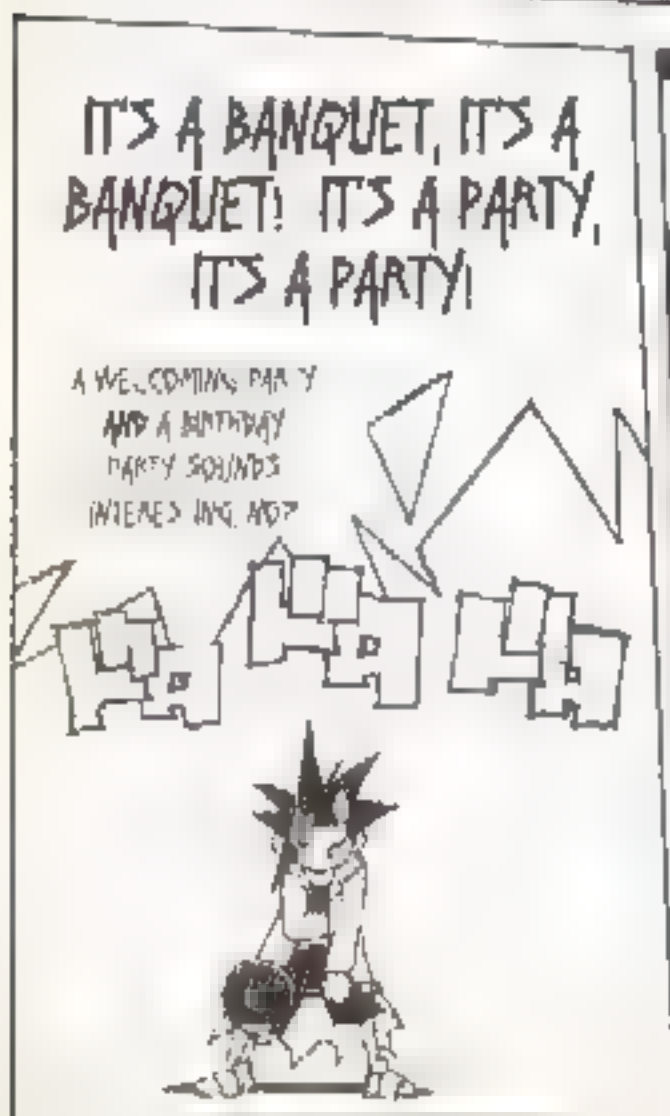 IT'S A BANQUET, IT'S A
BANQUET! IT'S A PARTY,
IT'S A PARTY!
A WELCOMING PARTY
AND A BIRTHDAY
PARTY SOUNDS
INTERESTING, NO?